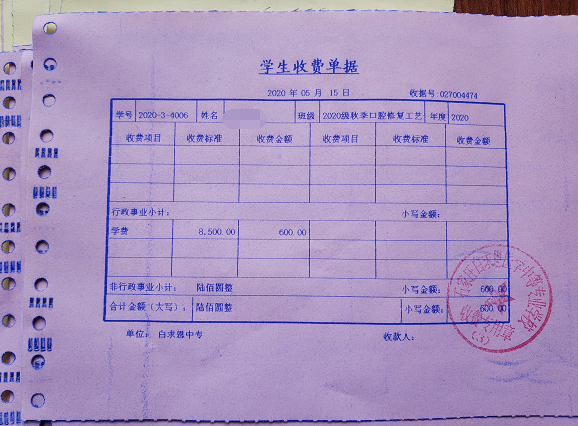 学生收费单据
2020 年 05 月 15 日 收据号:027004474
学号 2020-3-4006 姓名 班级 2020级秋季口腔修复工艺 年度 2020
收费项目 收费标准 收费金额 收费项目 收费标准 收费金额
行政事业小计: 小写金额:
学费 8,500.00 600.00
非行政事业小计: 陆佰圆整 小写金额: 600.00
合计金额(大写): 陆佰圆整 小写金额: 600.00
单位: 白求恩中专 收款人:
石家庄白求恩医学中等专业学校
收费专用章